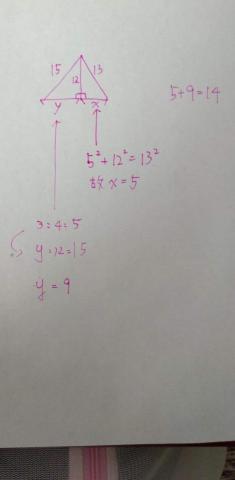 15 12 13
y x
5+9=14
5²+12²=13²
故 x=5
3:4:5
y:12:15
y=9